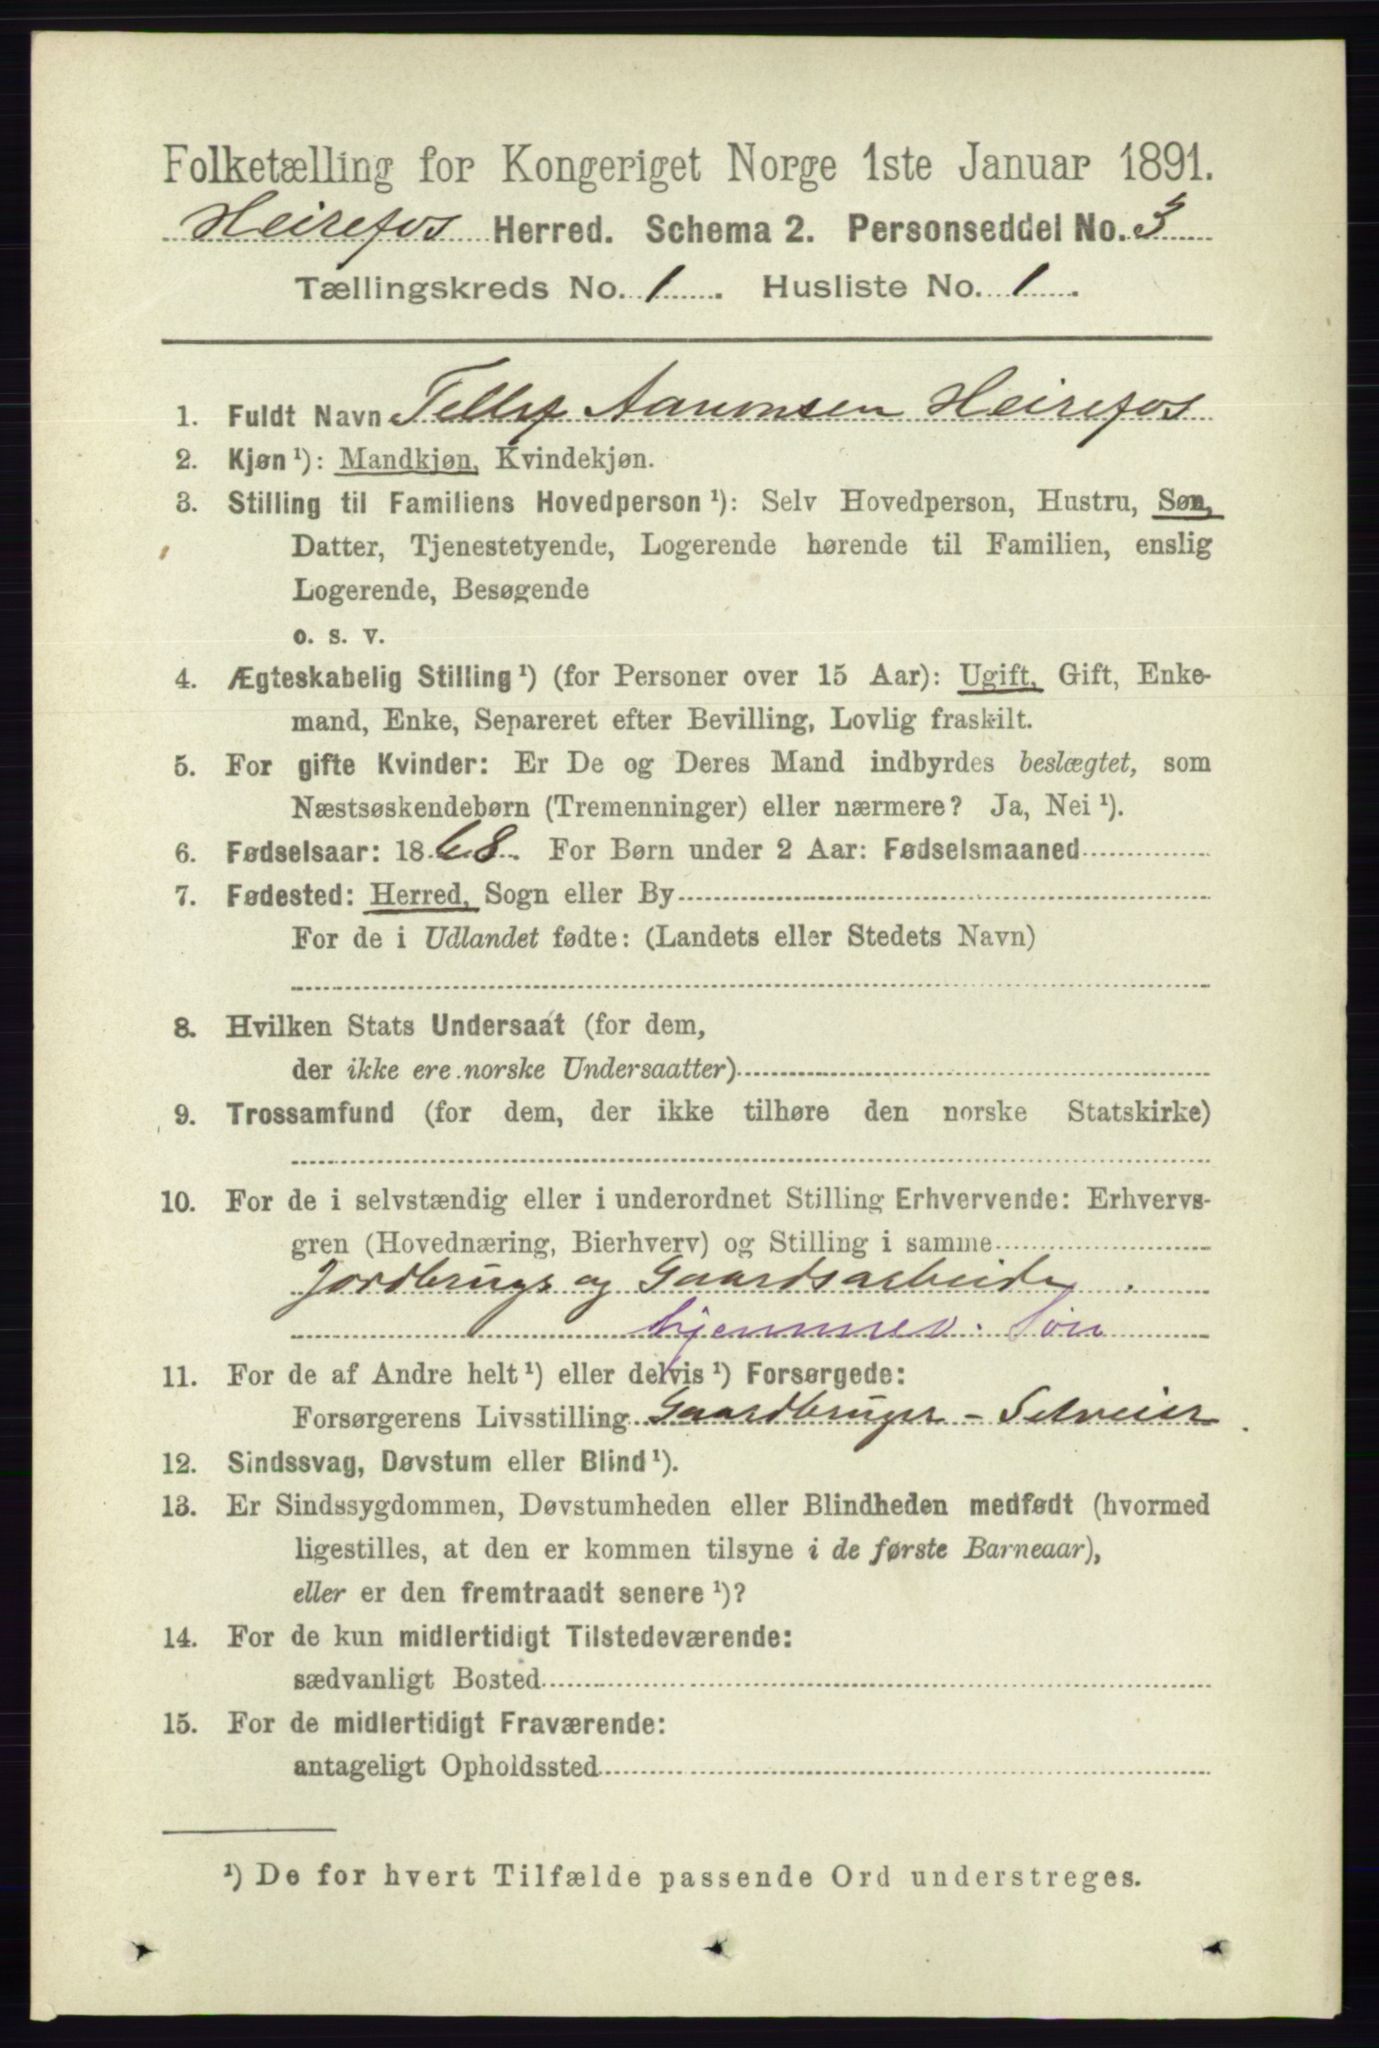 Folketælling for Kongeriget Norge 1ste Januar 1891.
Heirefos Herred. Schema 2. Personseddel No. 3
Tællingskreds No. 1. Husliste No. 1.
1. Fuldt Navn Tellef Aanonsen Heirefos
2. Kjøn ¹): Mandkjøn, Kvindekjøn.
3. Stilling til Familiens Hovedperson ¹): Selv Hovedperson, Hustru, Søn,
Datter, Tjenestetyende, Logerende hørende til Familien, enslig
Logerende, Besøgende
o. s. v.
4. Ægteskabelig Stilling ¹) (for Personer over 15 Aar): Ugift, Gift, Enke-
mand, Enke, Separeret efter Bevilling, Lovlig fraskilt.
5. For gifte Kvinder: Er De og Deres Mand indbyrdes beslægtet, som
Næstsøskendebørn (Tremenninger) eller nærmere? Ja, Nei ¹).
6. Fødselsaar: 1868. For Børn under 2 Aar: Fødselsmaaned
7. Fødested: Herred, Sogn eller By
For de i Udlandet fødte: (Landets eller Stedets Navn)
8. Hvilken Stats Undersaat (for dem,
der ikke ere norske Undersaatter)
9. Trossamfund (for dem, der ikke tilhøre den norske Statskirke)
10. For de i selvstændig eller i underordnet Stilling Erhvervende: Erhvervs-
gren (Hovednæring, Bierhverv) og Stilling i samme
Jordbrugs og Gaardsarbeide.
hjemmev. Søn
11. For de af Andre helt ¹) eller delvis ¹) Forsørgede:
Forsørgerens Livsstilling Gaardbruger - Selveier.
12. Sindssvag, Døvstum eller Blind ¹).
13. Er Sindssygdommen, Døvstumheden eller Blindheden medfødt (hvormed
ligestilles, at den er kommen tilsyne i de første Barneaar),
eller er den fremtraadt senere ¹)?
14. For de kun midlertidigt Tilstedeværende:
sædvanligt Bosted
15. For de midlertidigt Fraværende:
antageligt Opholdssted
¹) De for hvert Tilfælde passende Ord understreges.